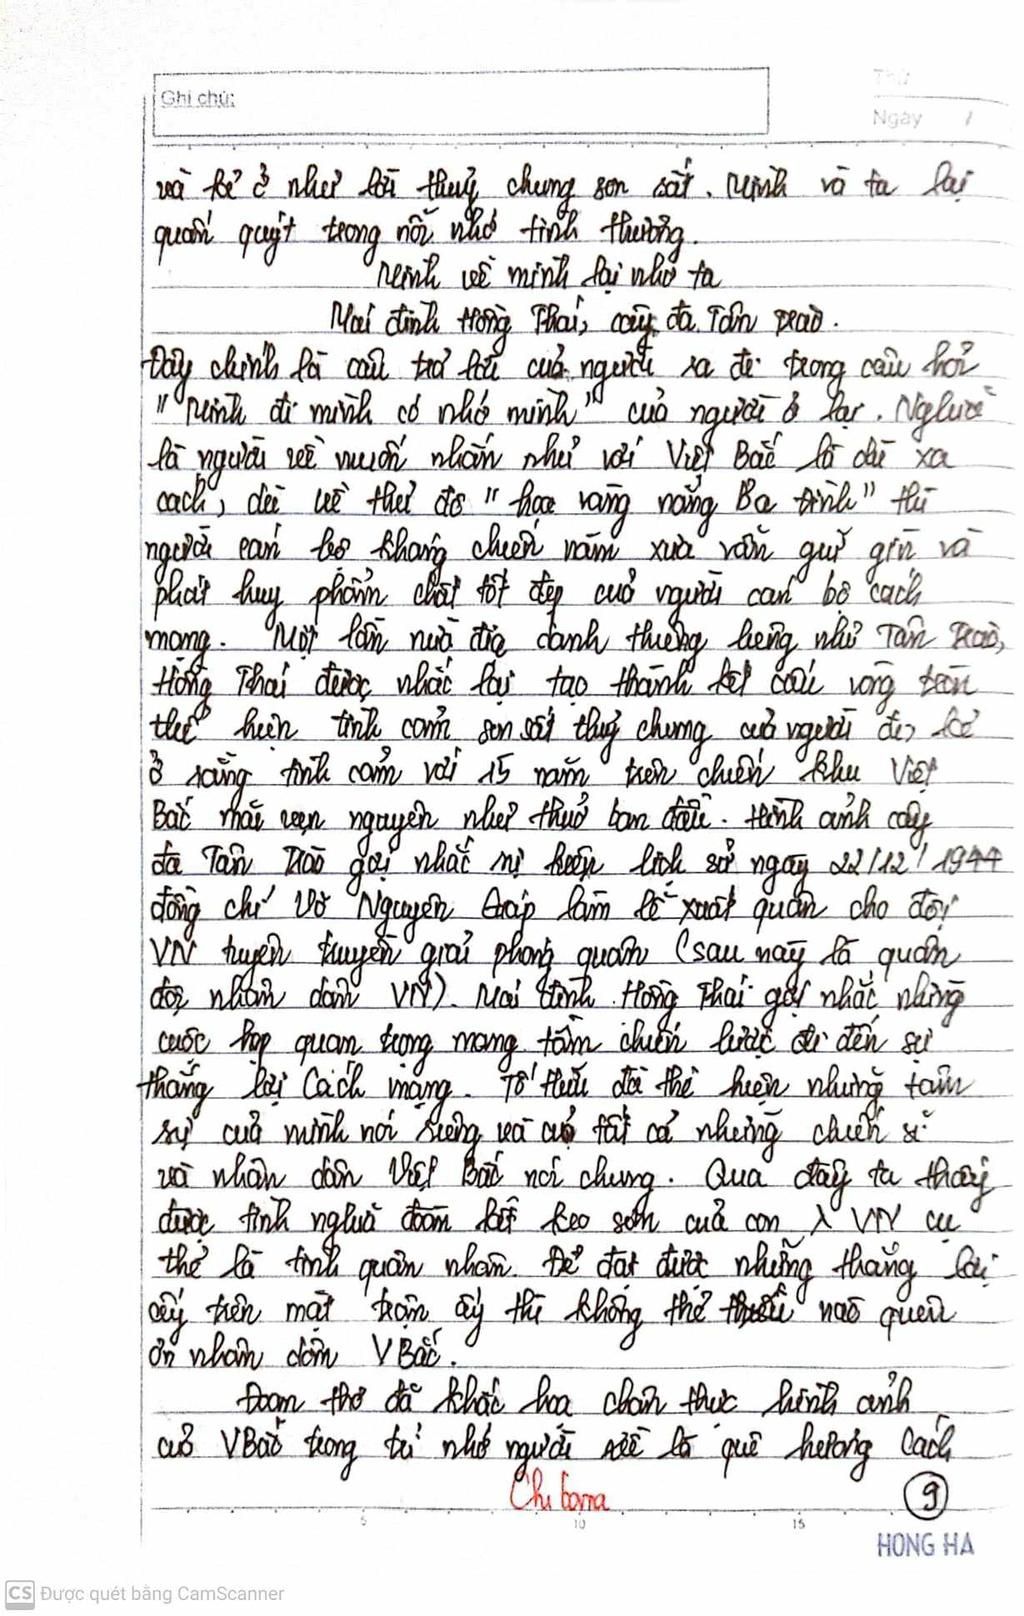 Ghi chú:
Thứ
Ngày /
và kẻ ở như lời thuỷ chung son sắt. Mình và ta lại
quấn quýt trong nỗi nhớ tình thương.
Mình về mình lại nhớ ta
Mái đình Hồng Thái, cây đa Tân Trào.
Đây chính là câu trả lời của người ra đi trong câu hỏi
"Mình đi mình có nhớ mình" của người ở lại. Nghĩa
là người về muốn nhắn nhủ với Việt Bắc là dù xa
cách, dù về thủ đô "hoa vàng nắng Ba Đình" thì
người cán bộ kháng chiến năm xưa vẫn giữ gìn và
phát huy phẩm chất tốt đẹp của người cán bộ cách
mạng. Một lần nữa địa danh thiêng liêng như Tân Trào,
Hồng Thái được nhắc lại tạo thành kết cấu vòng tròn
thể hiện tình cảm son sắt thuỷ chung của người đi, kẻ
ở rằng tình cảm với 15 năm trên chiến khu Việt
Bắc mãi vẹn nguyên như thuở ban đầu. Hình ảnh cây
đa Tân Trào gợi nhắc sự kiện lịch sử ngày 22/12/1944
đồng chí Võ Nguyên Giáp làm lễ xuất quân cho đội
VN tuyên truyền giải phóng quân (sau này là quân
đội nhân dân VN). Mái đình Hồng Thái gợi nhắc những
cuộc họp quan trọng mang tầm chiến lược đi đến sự
thắng lợi Cách mạng. Tố Hữu đã thể hiện những tâm
sự của mình nói riêng và của tất cả những chiến sĩ
và nhân dân Việt Bắc nói chung. Qua đây ta thấy
được tình nghĩa đoàn kết keo sơn của con λ VN cụ
thể là tình quân nhân. Để đạt được những thắng lợi
ấy trên mặt trận ấy thì không thể nào quên
ơn nhân dân VBắc.
Đoạn thơ đã khắc hoạ chân thực hình ảnh
của VBắc trong nhớ người về là quê hương Cách
Chi boma
9
5 10 15
HONG HA
CS Được quét bằng CamScanner